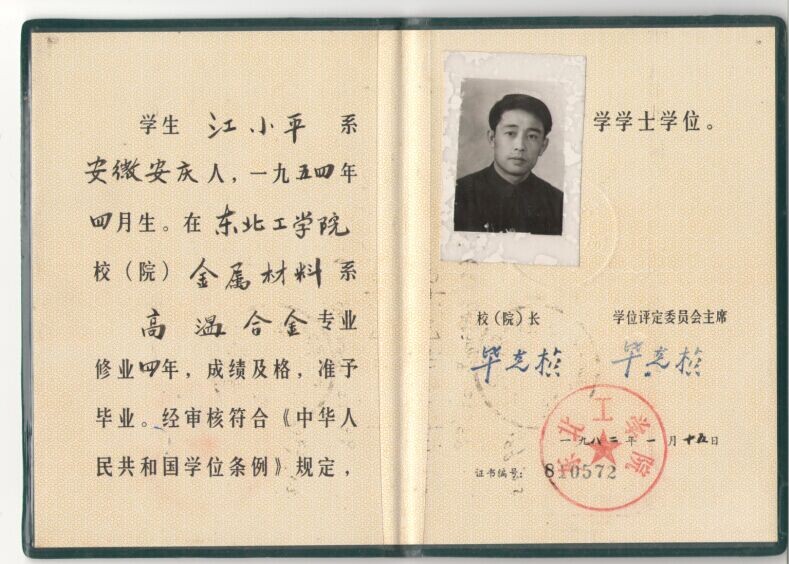 学生 江小平 系
安徽安庆人，一九五四年
四月生。在 东北工学院
校（院） 金属材料 系
高温合金专业
修业四年，成绩及格，准予
毕业。经审核符合《中华人
民共和国学位条例》规定，
学学士学位。
校（院）长
学位评定委员会主席
毕克桢
毕克桢
东北工学院
一九八二年一月十五日
证书编号：810572